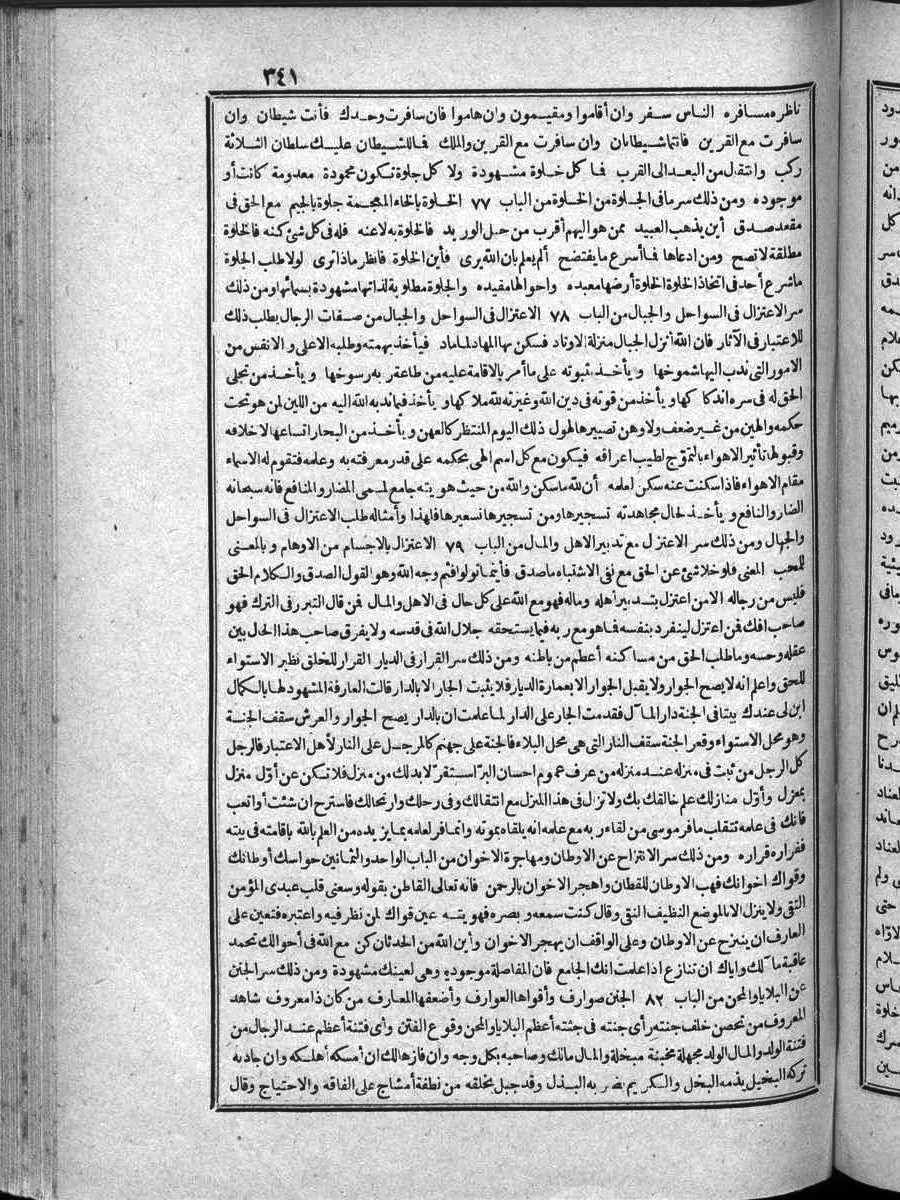 ٣٤١
ناظره مسافره الناس سفر وان أقاموا ومقيمون وان هاموا فان سافرت وحدك فأنت شيطان وان
سافرت مع القرين فانتما شيطانان وان سافرت مع القرين والملك فما للشيطان عليك سلطان الثلاثة
ركب وانتقل من البعد الى القرب فما كل خلوة مشهودة ولا كل جلوة تكون محمودة معدومة كانت أو
موجوده ومن ذلك سر ما فى الجلوة من الخلوة من الباب ٧٧ الخلوة بالخاء المعجمة جلوة بالجيم مع الحق فى
مقعد صدق أين يذهب العبيد ممن هو اليهم أقرب من حبل الوريد فالخلوة به لا عنه فله فى كل شئ كنه فالخلوة
مطلقة لا تصح ومن ادعاها فما أسرع ما يفتضح ألم يعلم بان الله يرى فأين الخلوة فانظر ماذا ترى لولا طلب الجلوة
ما شرع أحد فى اتخاذ الخلوة الخلوة أرضها معبده وأحوالها مفيده والجلوة مطلوبة لذاتها مشهودة بسماتها ومن ذلك
سر الاعتزال فى السواحل والجبال من الباب ٧٨ الاعتزال فى السواحل والجبال من صفات الرجال يطلب ذلك
للاعتبار فى الآثار فان الله أنزل الجبال منزلة الاوتاد فسكن بها المهاد لما ماد فيأخذ بهمته وطلبه الاعلى والانفس من
الامور التى ندب اليها شموخها ويأخذ ثبوته على ما أمر بالاقامة عليه من طاعة ربه رسوخها ويأخذ من تجلى
الحق له فى سره اندكاكها ويأخذ من قوته فى دين الله وغيرته لله ملاكها ويأخذ فيما ندبه الله اليه من اللين لمن هو تحت
حكمه والهين من غير ضعف ولا وهن تصييرها لهول ذلك اليوم المنتظر كالعهن ويأخذ من البحار اتساعها لاخلاقه
وقبولها تأثير الاهواء بالتموّج لطيب اعراقه فيكون مع كل اسم الهى بحكمه على قدر معرفته به وعلمه فتقوم له الاسماء
مقام الاهواء فاذا سكنت عنه سكن لعلمه أن لله ما سكن والله من حيث هويته جامع لمسمى المضار والمنافع فانه سبحانه
الضار والنافع ويأخذ لحال مجاهدته تسجيرها ومن تسجيرها تسعيرها فلهذا وأمثاله طلب الاعتزال فى السواحل
والجبال ومن ذلك سر الاعتزال مع تدبير الاهل والمال من الباب ٧٩ الاعتزال بالاجسام من الاوهام وبالمعنى
للمحب المعنى فلو خلا شئ عن الحق مع نفى الاشتباه ما صدق فأينما تولوا فثم وجه الله وهو القول الصدق والكلام الحق
فليس من رجاله الا من اعتزل بتدبير أهله وماله فهو مع الله على كل حال فى الاهل والمال فمن قال التبرر فى الترك فهو
صاحب افك فمن اعتزل لينفرد بنفسه فما هو مع ربه فيما يستحقه جلال الله فى قدسه ولا يفرق صاحب هذا الحال بين
عقله وحسه وما طلب الحق من مساكنه أعظم من باطنه ومن ذلك سر القرار فى الديار القرار للخلق نظير الاستواء
للحق واعلم انه لا يصح الجوار ولا يقبل الجوار الا بعمارة الديار فلا يثبت الجار الا بالدار قالت العارفة المشهود لها بالكمال
ابن لى عندك بيتا فى الجنة دار المآل فقدمت الجار على الدار لما علمت ان بالدار يصح الجوار والعرش سقف الجنة
وهو محل الاستواء وقعر الجنة سقف النار التى هى محل البلاء فالجنة على جهنم كالمرجل على النار لأهل الاعتبار فالرجل
كل الرجل من ثبت فى منزله عند منزله من عرف عموم احسان البرّ استقرّ لا بد لك من منزل فلا تكن عن أوّل منزل
بمعزل وأوّل منازلك علم خالقك بك ولا تزل فى هذا المنزل مع انتقالك وفى رحلك وارتحالك فاسترح ان شئت أو اتعب
فانك فى علمه تتقلب ما فر موسى من لقاء ربه مع علمه انه يلقاه بموته وانما فر لعلمه بما يزيده من العلم بالله باقامته فى بيته
ففراره قراره ومن ذلك سر الانتزاح عن الاوطان ومهاجرة الاخوان من الباب الواحد والثمانين حواسك أوطانك
وقواك اخوانك فهب الاوطان للقطان واهجر الاخوان بالرحمن فانه تعالى القاطن بقوله وسعنى قلب عبدى المؤمن
التقى ولا ينزل الا بالموضع النظيف النقى وقال كنت سمعه وبصره فهويته عين قواك لمن نظر فيه واعتبره فتعين على
العارف ان ينتزح عن الاوطان وعلى الواقف ان يهجر الاخوان وأين الله من الحدثان كن مع الله فى أحوالك تحمد
عاقبة مآلك واياك ان تنازع اذا علمت انك الجامع فان المفاصلة موجودة وهى لعينك مشهودة ومن ذلك سر الجنن
عن البلايا والمحن من الباب ٨٢ الجنن صوارف وأقواها العوارف وأضعفها المعارف من كان ذا معروف شاهد
المعروف من تحصن خلف جنته رأى جنته فى جنته أعظم البلايا والمحن وقوع الفتن وأى فتنة أعظم عند الرجال من
فتنة الولد والمال الولد مجهلة مجبنة مبخلة والمال مالك وصاحبه بكل وجه وان فاز هالك ان أمسكه أهلكه وان جاد به
تركه البخيل يذمه البخل والكريم يضر به البذل وقد جبل بخلقه من نطفة أمشاج على الفاقه والاحتياج وقال